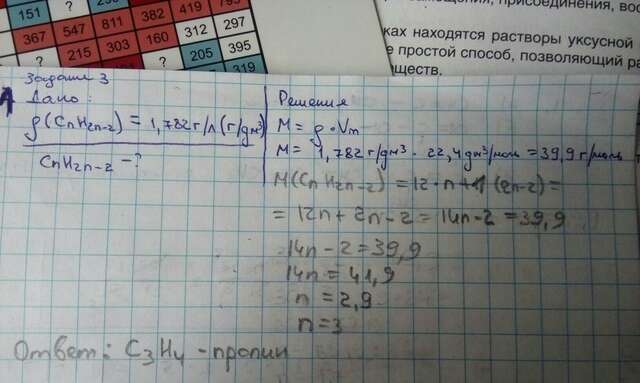 151 ?
367 547 811 382 419 795
? 215 303 160 312 297
? ? 205 395
319
присоединения, вос
ках находятся растворы уксусной
е простой способ, позволяющий ра
ществ.
Задание 3
Дано:
ρ(CnH2n-2) = 1,782 г/л (г/дм³)
CnH2n-2 - ?
Решение
M = ρ · Vm
M = 1,782 г/дм³ · 22,4 дм³/моль = 39,9 г/моль
M(CnH2n-2) = 12·n + 1(2n-2) =
= 12n + 2n - 2 = 14n - 2 = 39,9
14n - 2 = 39,9
14n = 41,9
n = 2,9
n = 3
Ответ: C3H4 - пропин